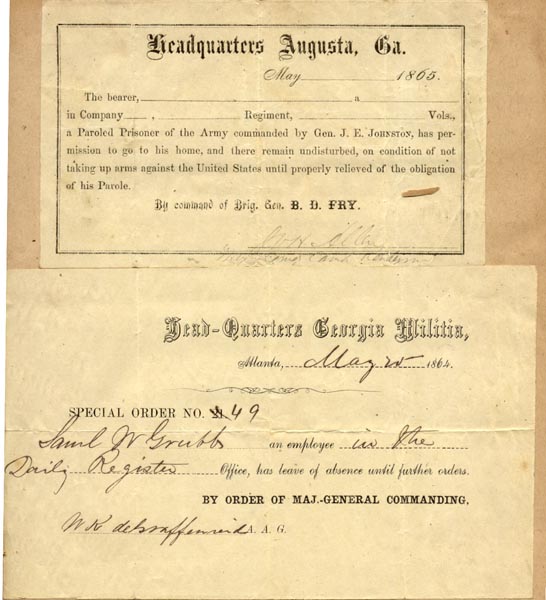 Headquarters Augusta, Ga.
May 1865.
The bearer, a
in Company , Regiment, Vols.,
a Paroled Prisoner of the Army commanded by Gen. J. E. JOHNSTON, has per-
mission to go to his home, and there remain undisturbed, on condition of not
taking up arms against the United States until properly relieved of the obligation
of his Parole.
By command of Brig. Gen. B. D. FRY.
Head-Quarters Georgia Militia,
Atlanta, May 25 1864.
SPECIAL ORDER NO. 49
Saml W Grubb an employee in the
Daily Register Office, has leave of absence until further orders.
BY ORDER OF MAJ.-GENERAL COMMANDING,
W K deGraffenreid A. A. G.